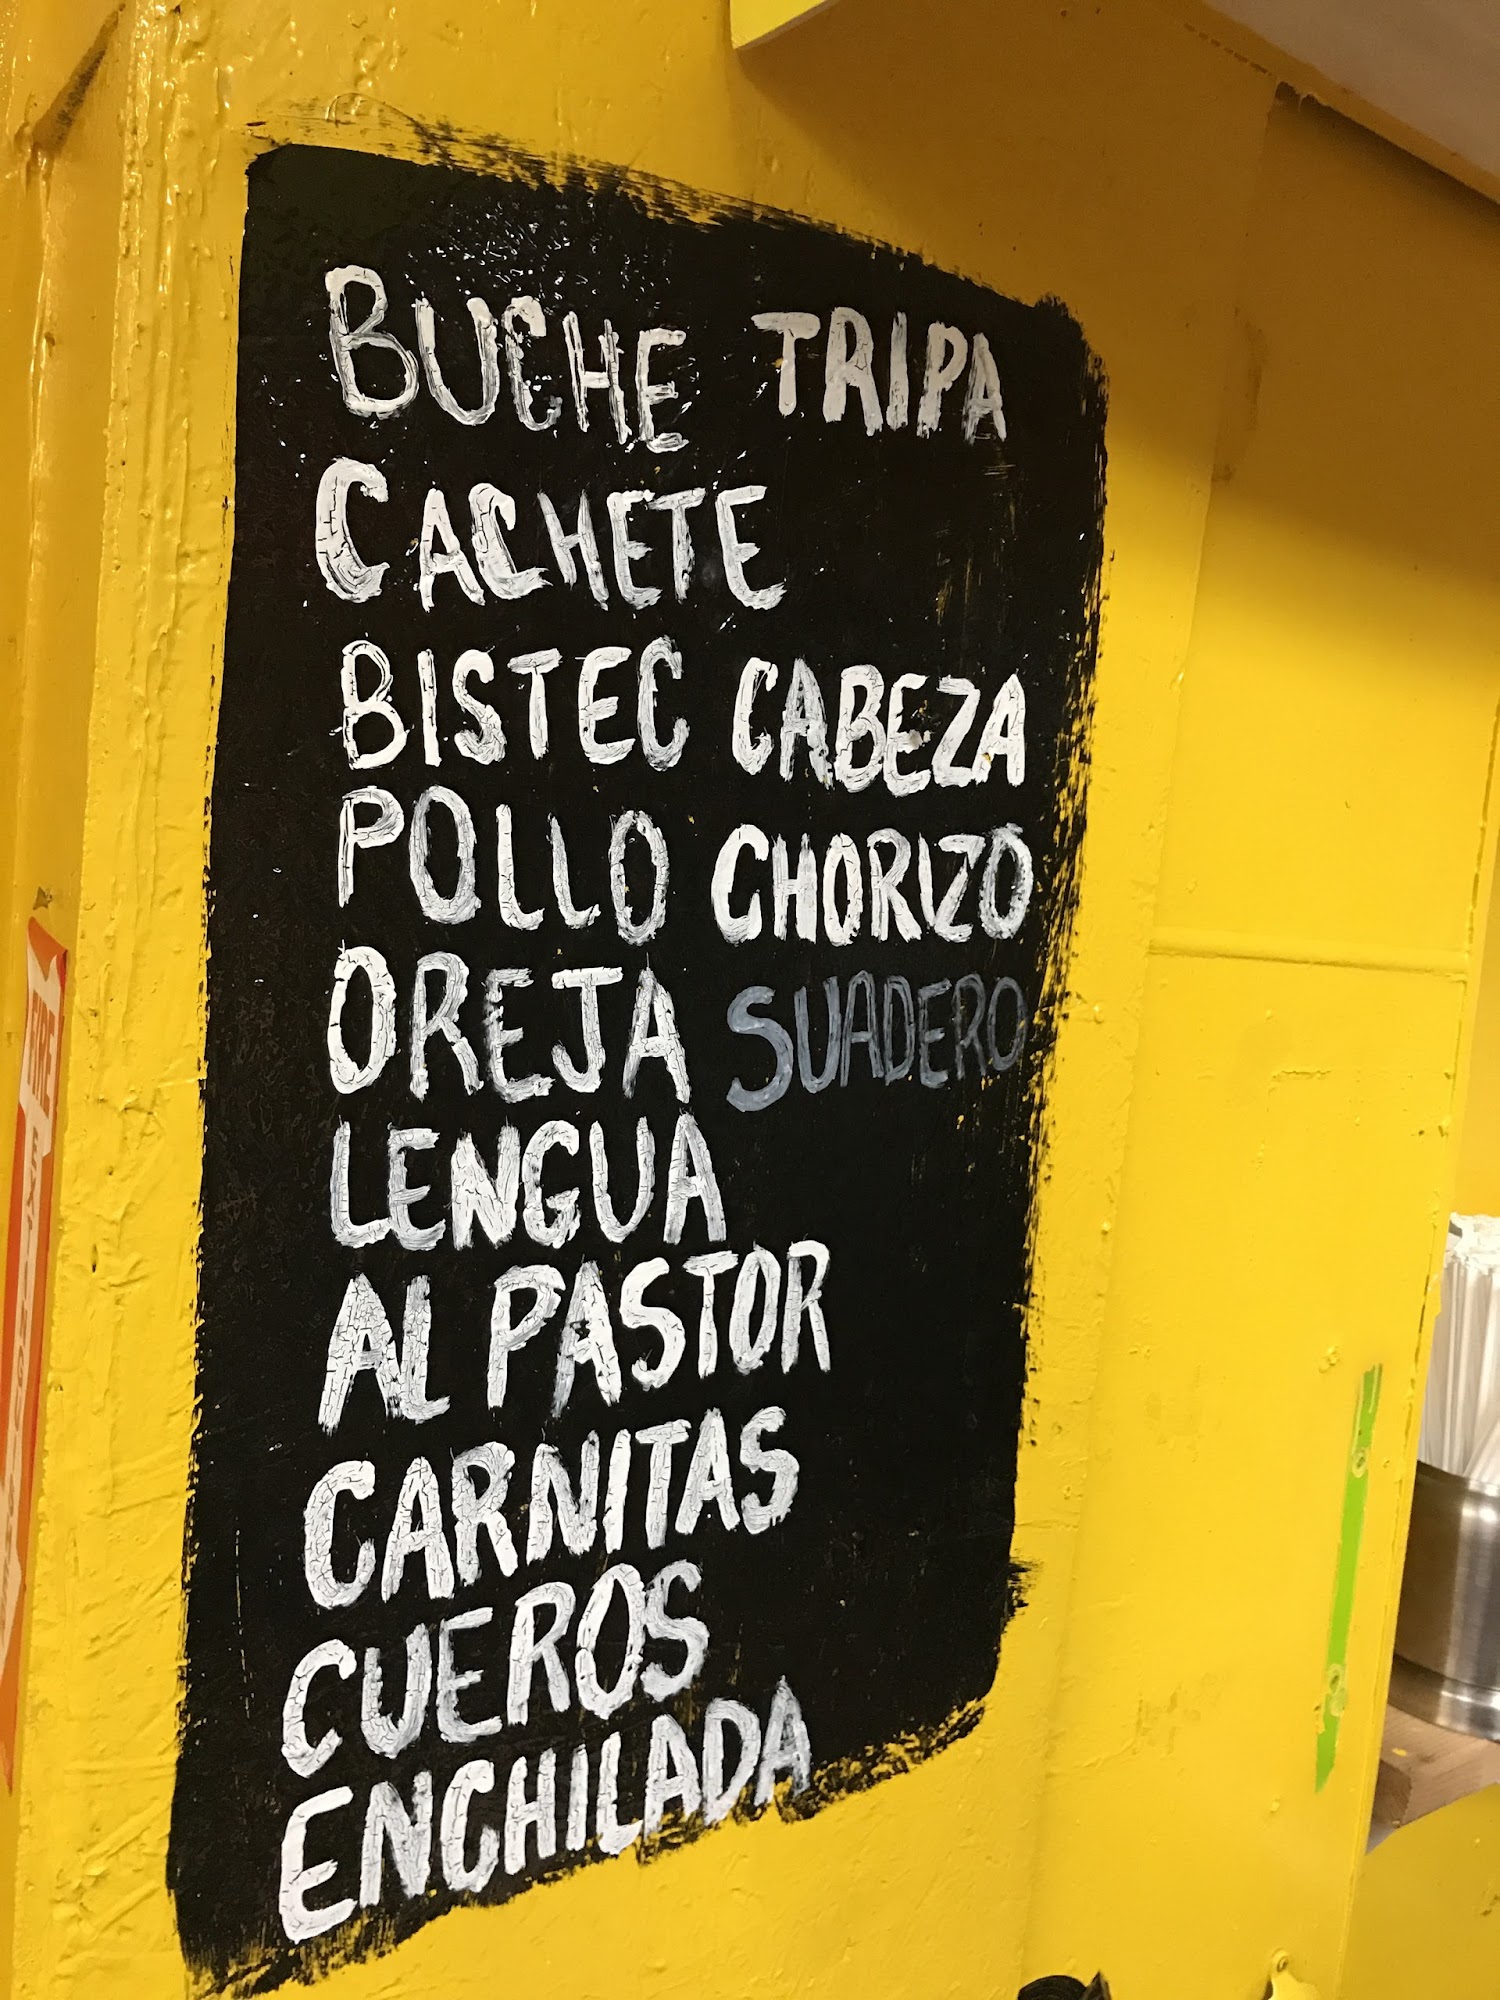 BUCHE TRIPA
CACHETE
BISTEC CABEZA
POLLO CHORIZO
OREJA SUADERO
LENGUA
AL PASTOR
CARNITAS
CUEROS
ENCHILADA
FIRE